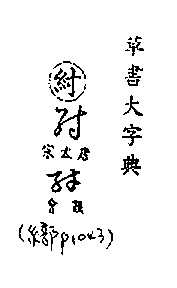 草書大字典
紂
紂
宋太宗
紂
(糸部P1043)